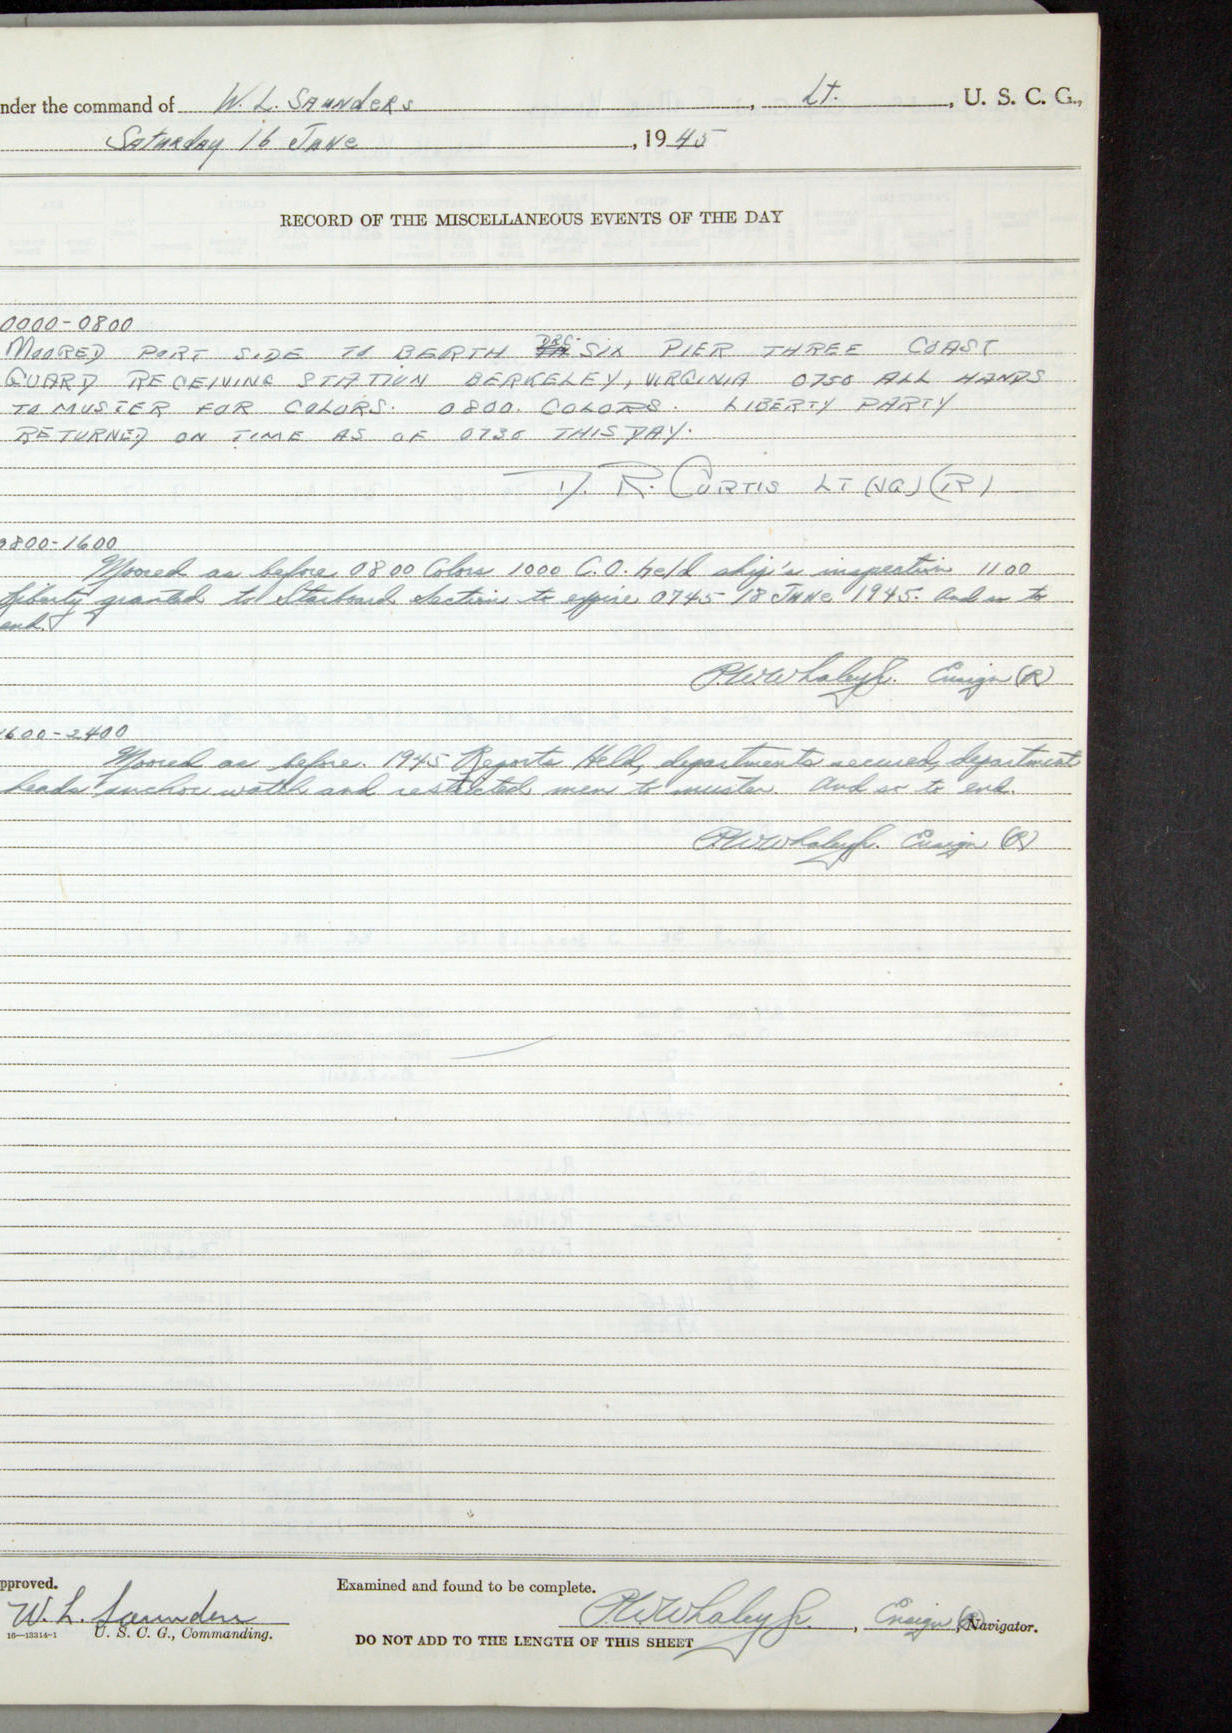 nder the command of W. L. Saunders, Lt., U. S. C. G.,
Saturday 16 June, 1945
RECORD OF THE MISCELLANEOUS EVENTS OF THE DAY
0000-0800
MOORED PORT SIDE TO BERTH SIX PIER THREE COAST
GUARD RECEIVING STATION BERKELEY, VIRGINIA 0750 ALL HANDS
TO MUSTER FOR COLORS. 0800. COLORS. LIBERTY PARTY
RETURNED ON TIME AS OF 0730 THIS DAY.
D. R. CURTIS LT (JG) (R)
0800-1600
Moored as before 0800 Colors 1000 C.O. held ship's inspection 1100
liberty granted to Starboard Section to expire 0745 18 June 1945. And so to
end.
P.W. Whaley Jr. Ensign (R)
1600-2400
Moored as before. 1945 Reports Held, departments secured, department
heads anchor watch and restricted men to muster. And so to end.
P.W. Whaley Jr. Ensign (R)
pproved. Examined and found to be complete.
W. L. Saunders P.W. Whaley Jr., Ensign (R), Navigator.
16—13314-1 U. S. C. G., Commanding.
DO NOT ADD TO THE LENGTH OF THIS SHEET